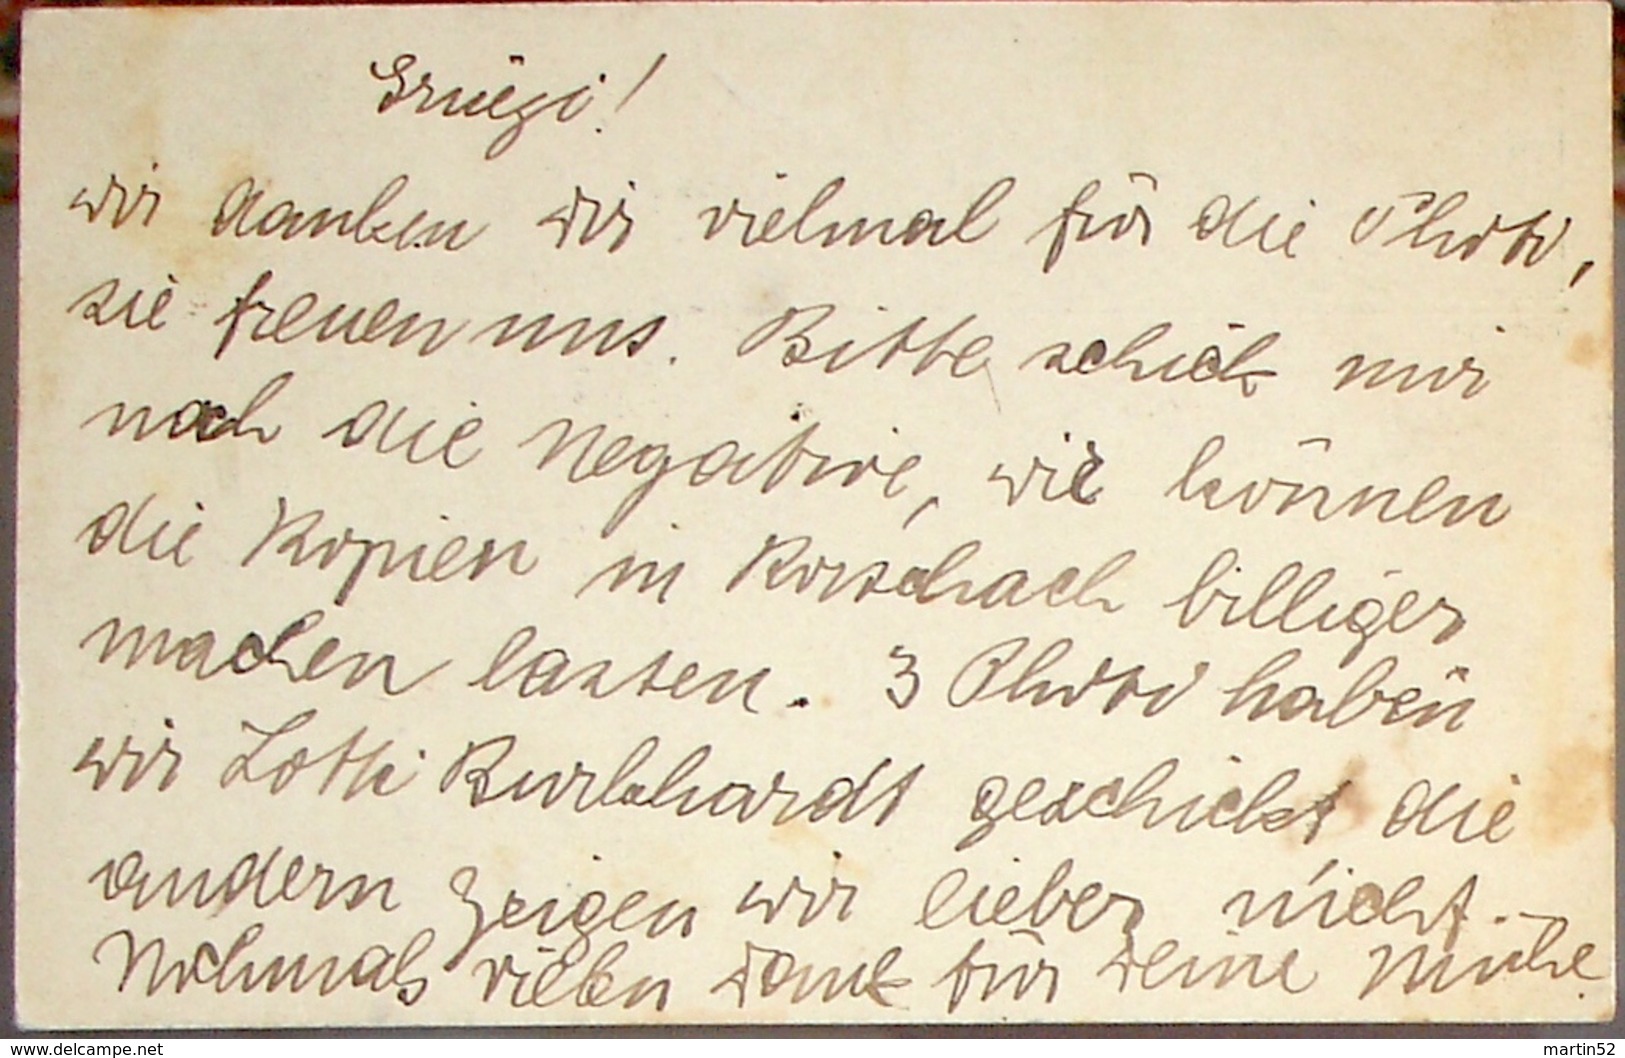 Grüezi!
wir danken dir vielmal für die Photo,
sie freuen uns. Bitte schick mir
noch die Negative, wir können
die Kopien in Rorschach billiger
machen lassen. 3 Photo haben
wir Lotti Burkhardt geschickt die
andern zeigen wir lieber nicht.
Nochmals vielen Dank für deine Mühe.
www.delcampe.net
martin52